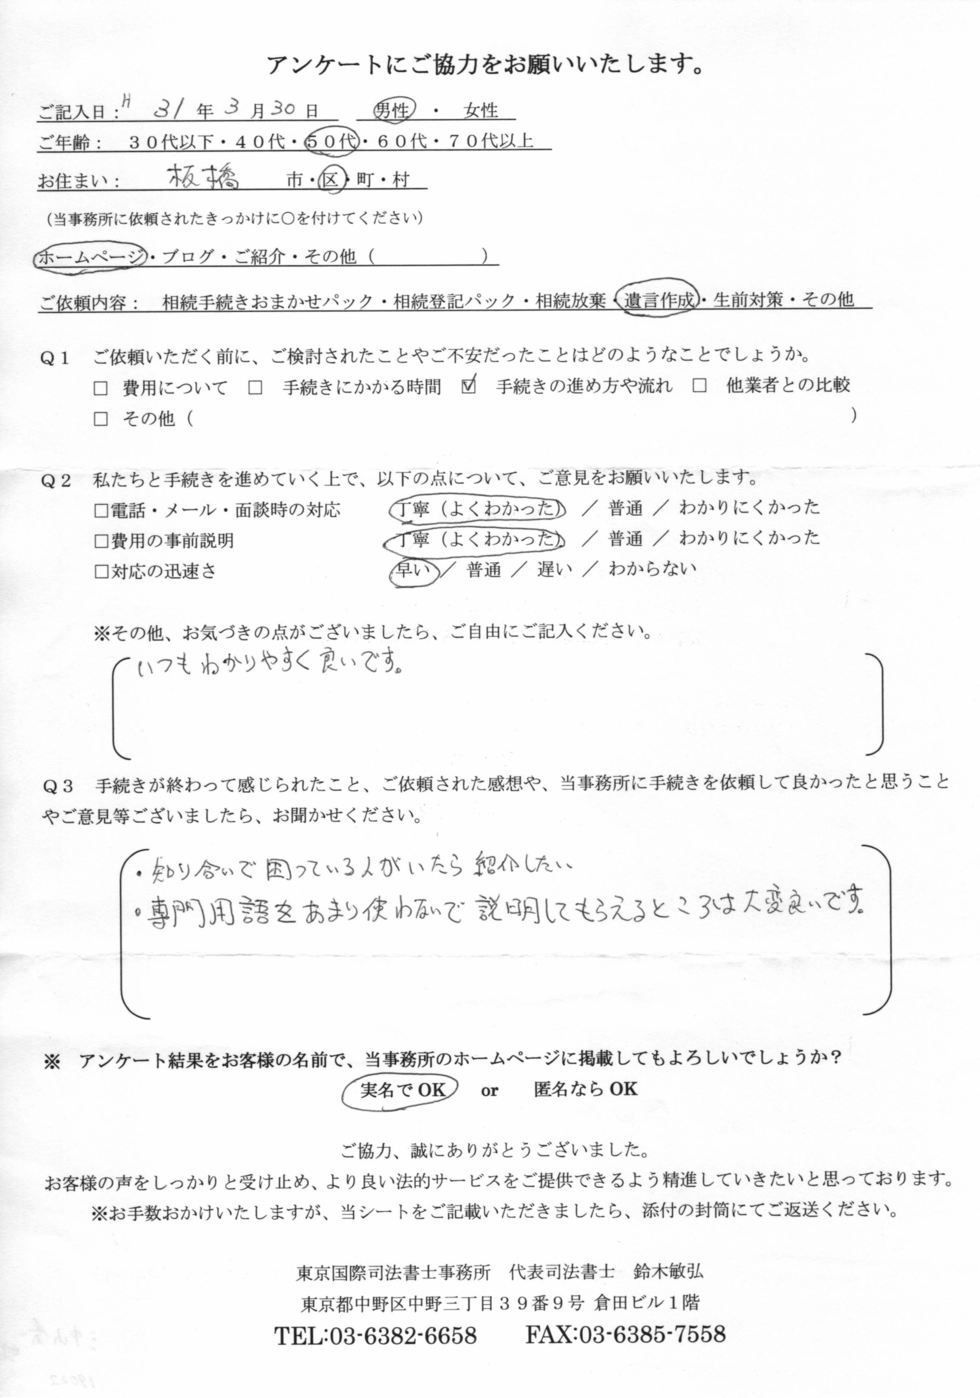 アンケートにご協力をお願いいたします。
ご記入日：H 31 年 3 月 30 日　男性 ・ 女性
ご年齢： ３０代以下・４０代・５０代・６０代・７０代以上
お住まい： 板橋 市・区・町・村
（当事務所に依頼されたきっかけに○を付けてください）
ホームページ・ブログ・ご紹介・その他（　　　　　　）
ご依頼内容： 相続手続きおまかせパック・相続登記パック・相続放棄・遺言作成・生前対策・その他
Ｑ１　ご依頼いただく前に、ご検討されたことやご不安だったことはどのようなことでしょうか。
□ 費用について □ 手続きにかかる時間 ☑ 手続きの進め方や流れ □ 他業者との比較
□ その他（　　　　　　）
Ｑ２　私たちと手続きを進めていく上で、以下の点について、ご意見をお願いいたします。
□電話・メール・面談時の対応　丁寧（よくわかった）／ 普通 ／ わかりにくかった
□費用の事前説明　丁寧（よくわかった）／ 普通 ／ わかりにくかった
□対応の迅速さ　早い／ 普通 ／ 遅い ／ わからない
※その他、お気づきの点がございましたら、ご自由にご記入ください。
いつもわかりやすく良いです。
Ｑ３　手続きが終わって感じられたこと、ご依頼された感想や、当事務所に手続きを依頼して良かったと思うこと
やご意見等ございましたら、お聞かせください。
・知り合いで困っている人がいたら紹介したい
・専門用語をあまり使わないで説明してもらえるところは大変良いです。
※　アンケート結果をお客様の名前で、当事務所のホームページに掲載してもよろしいでしょうか？
実名でOK　or　匿名ならOK
ご協力、誠にありがとうございました。
お客様の声をしっかりと受け止め、より良い法的サービスをご提供できるよう精進していきたいと思っております。
※お手数おかけいたしますが、当シートをご記載いただきましたら、添付の封筒にてご返送ください。
東京国際司法書士事務所　代表司法書士　鈴木敏弘
東京都中野区中野三丁目３９番９号 倉田ビル１階
TEL:03-6382-6658　FAX:03-6385-7558